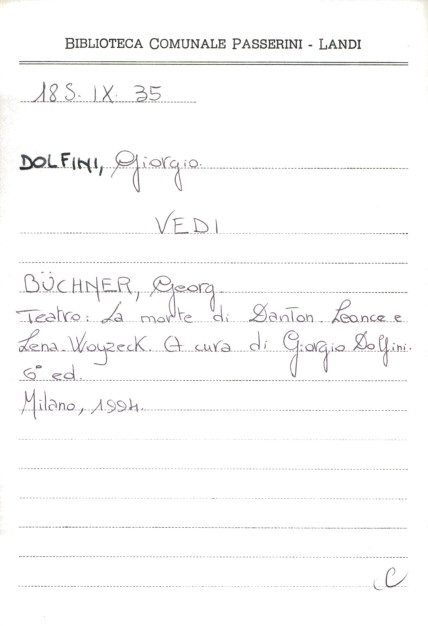 BIBLIOTECA COMUNALE PASSERINI - LANDI
18 S. IX. 35
DOLFINI, Giorgio.
VEDI
BÜCHNER, Georg.
Teatro: La morte di Danton. Leonce e
Lena. Woyzeck. A cura di Giorgio Dolfini.
6ª ed.
Milano, 1994.
C